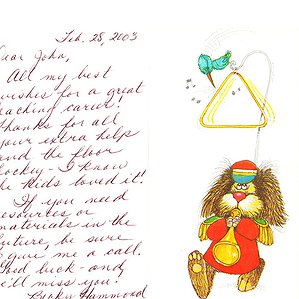 Feb. 28, 2003
Dear John,
All my best
wishes for a great
teaching career!
Thanks for all
your extra help
and the floor
hockey - I know
the kids loved it!
If you need
resources or
materials in the
future, be sure
to give me a call.
Good luck - and
we'll miss you!
Hammond